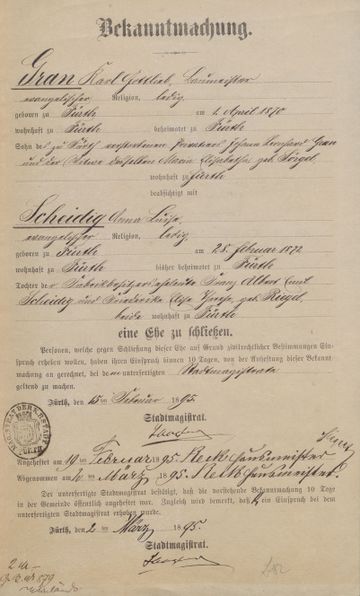 Bekanntmachung.
Gran Karl Gottlieb, Baumeister
evangelischer Religion, ledig
geboren zu Fürth am 1. April 1870
wohnhaft zu Fürth beheimatet zu Fürth
Sohn des zu Fürth verstorbenen Privatiers Johann Leonhard Gran
und der Witwe desselben Maria Elisabetha geb. Sörgel,
wohnhaft zu Fürth
beabsichtigt mit
Scheidig Anna Luise
evangelischer Religion, ledig,
geboren zu Fürth am 28. Februar 1872
wohnhaft zu Fürth bisher beheimatet zu Fürth
Tochter der Fabrikbesitzerseheleute Franz Albert Emil
Scheidig und Friederika geb. Riegel,
beide wohnhaft zu Fürth
eine Ehe zu schließen.
Personen, welche gegen Schließung dieser Ehe auf Grund zivilrechtlicher Bestimmungen Ein-
spruch erheben wollen, haben ihren Einspruch binnen 10 Tagen, von der Anheftung dieser Bekannt-
machung an gerechnet, bei dem unterfertigten Stadtmagistrate
geltend zu machen.
Fürth, den 15. Februar 1895.
Stadtmagistrat.
Angeheftet am 19 Februar 1895
Abgenommen am März 1895.
Der unterfertigte Stadtmagistrat bestätigt, daß die vorstehende Bekanntmachung 10 Tage
in der Gemeinde öffentlich angeheftet war. Zugleich wird bemerkt, daß ein Einspruch bei dem
unterfertigten Stadtmagistrat erhoben wurde.
Fürth, den 2. März 1895.
Stadtmagistrat.